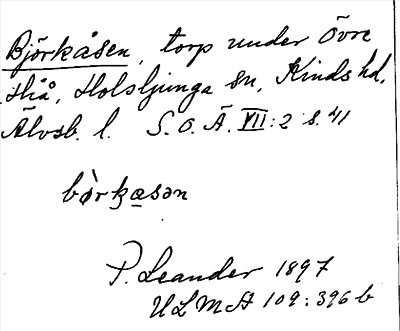 Björkåsen, torp under Övre
Hiå, Holsljunga sn, Kinds hd,
Älvsb. l. S. O. Ä. VII:2 s. 41
bö̀rkasən
P. Leander 1897
ULMA 109:396 b